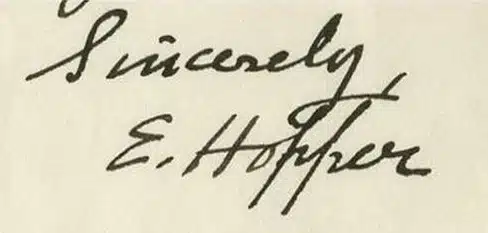 Sincerely,
E. Hopper